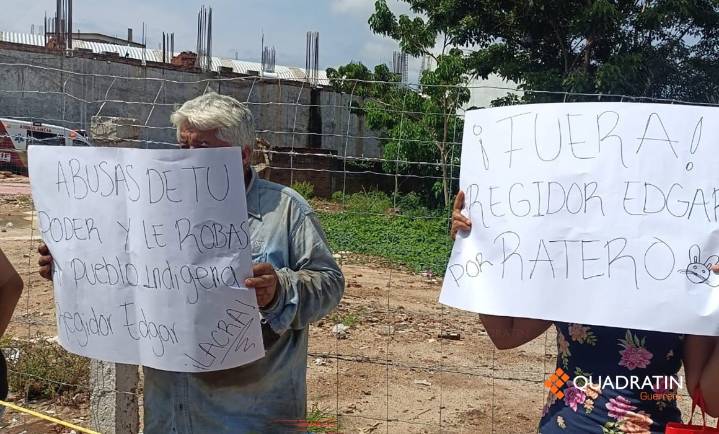 ABUSAS DE TU
PODER Y LE ROBAS
Al Pueblo indígena
Regidor Edgar
¡LACRA!
¡FUERA!
REGIDOR EDGAR
POR RATERO
QUADRATIN
Guerrero